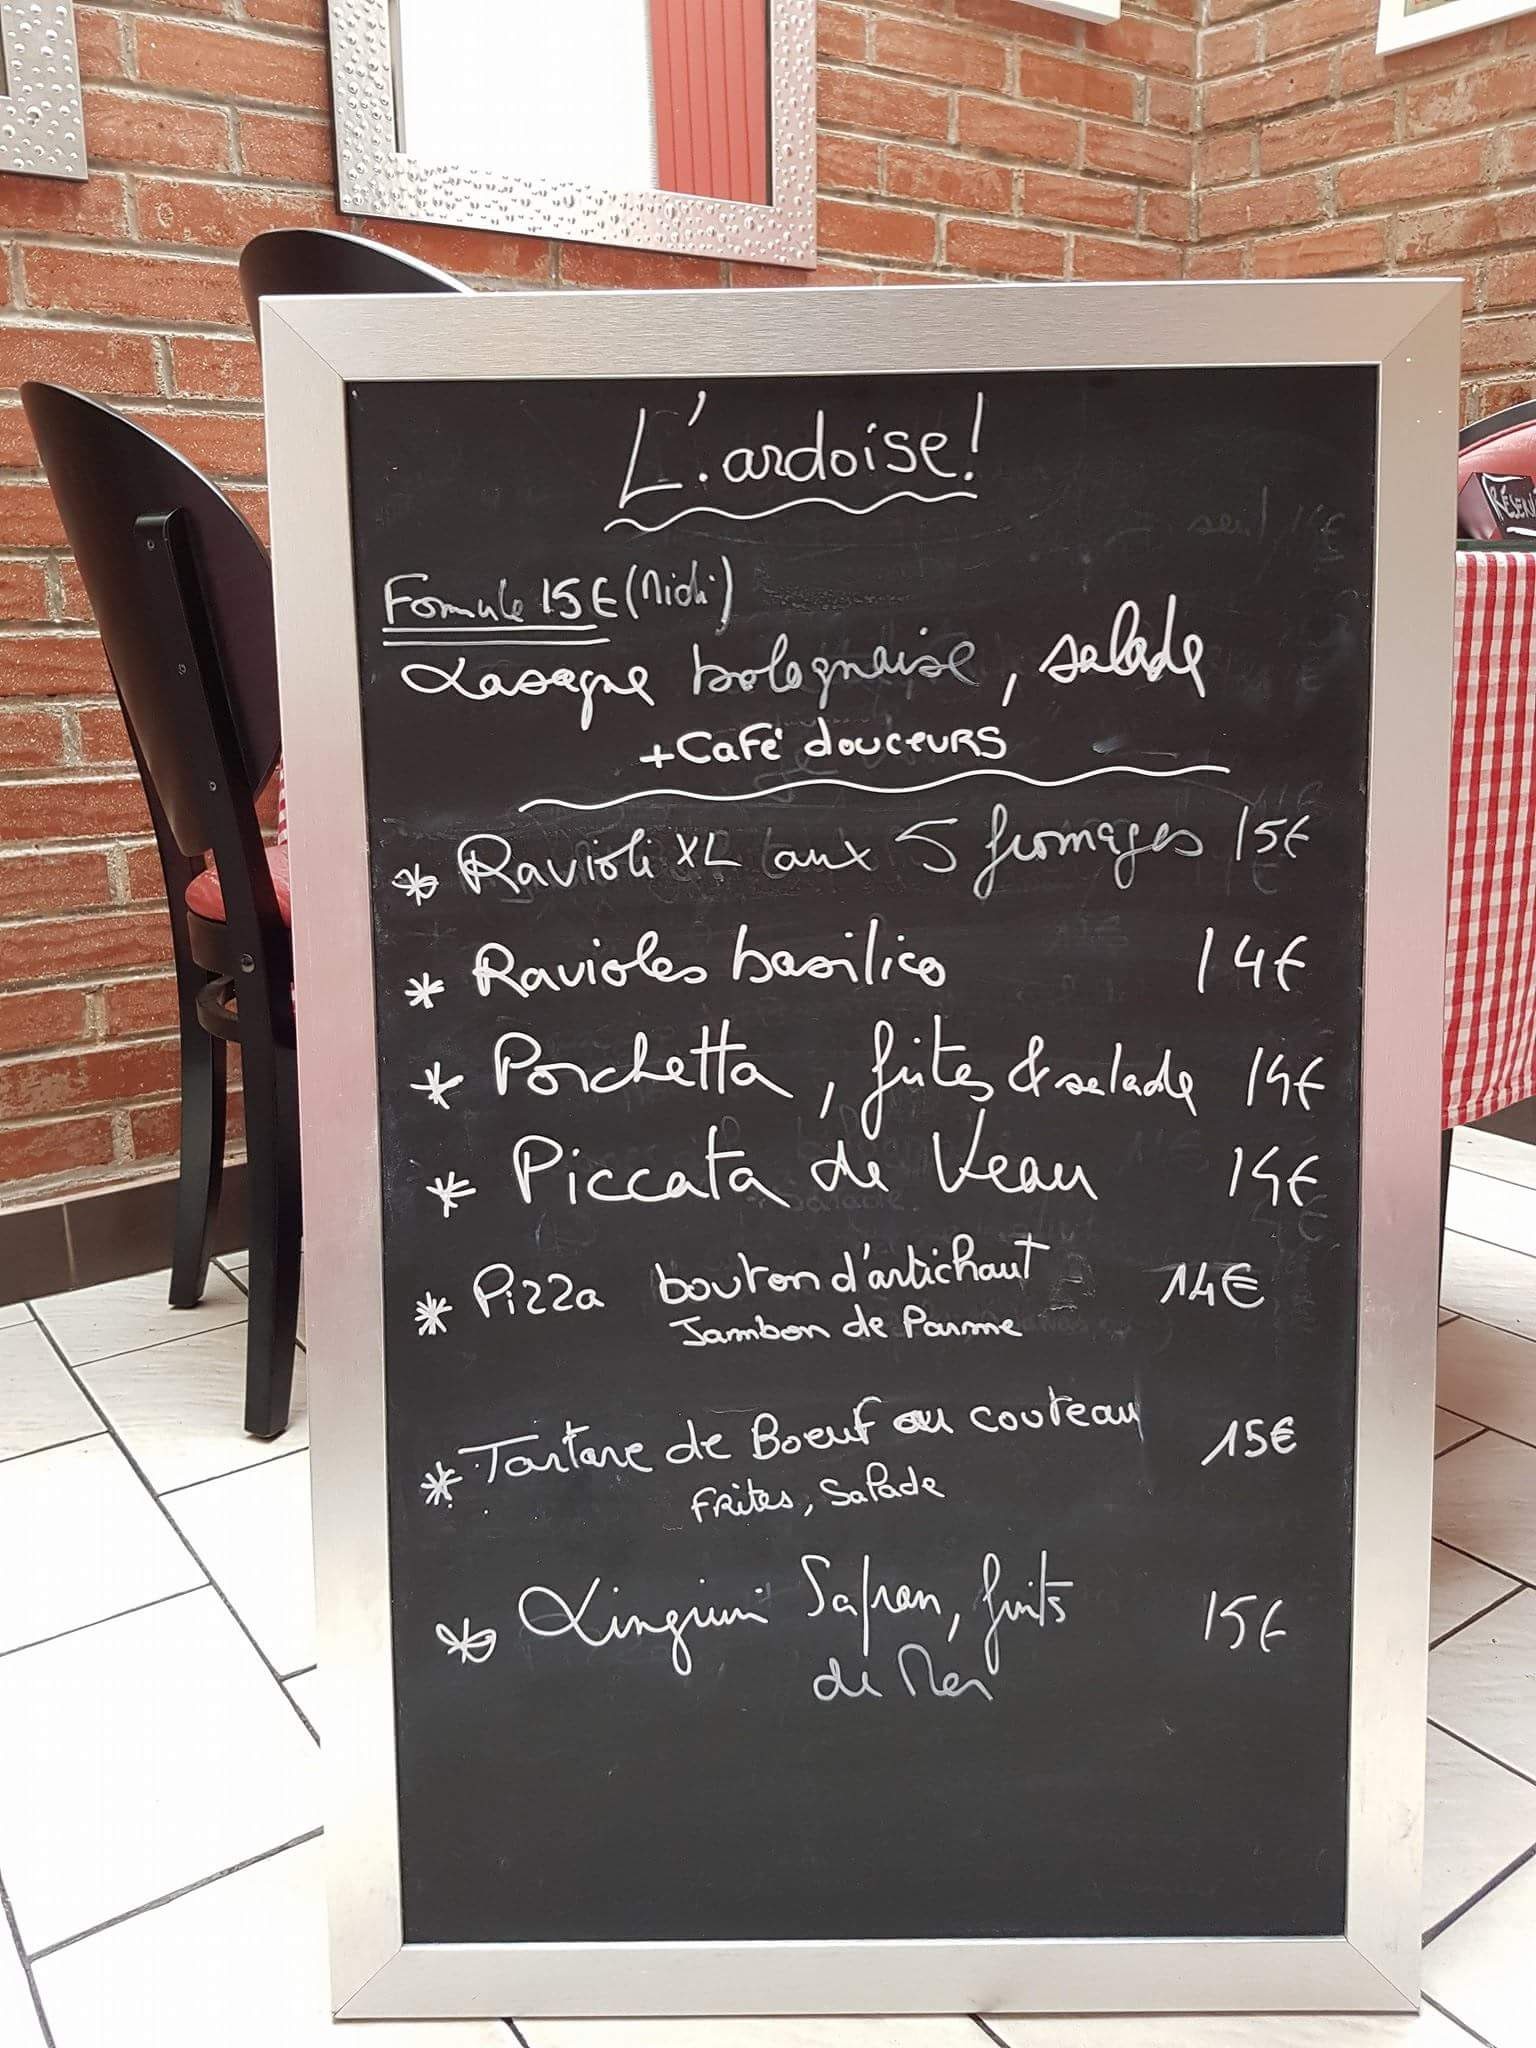 L'ardoise!
Formule 15€ (Midi)
Lasagne bolognaise, salade
+Café douceurs
* Ravioli XL aux 5 fromages 15€
* Ravioles basilico 14€
* Porchetta, frites & salade 14€
* Piccata de Veau 14€
* Pizza bouton d'artichaut 14€
Jambon de Parme
* Tartare de Boeuf au couteau 15€
Frites, Salade
* Linguini Safran, fruits 15€
de Mer